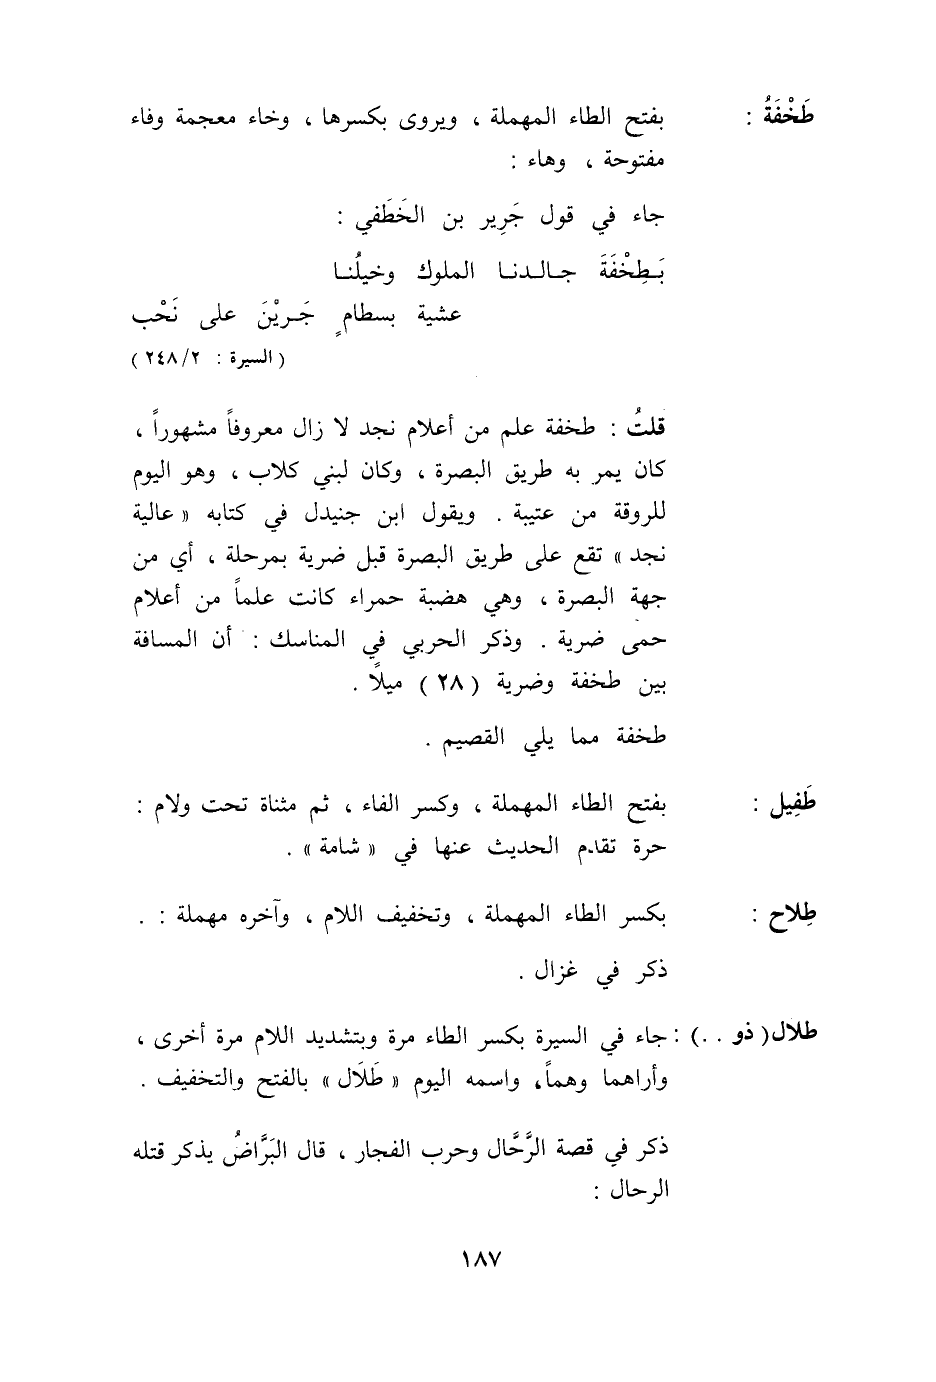 طَخْفَةُ : بفتح الطاء المهملة ، ويروى بكسرها ، وخاء معجمة وفاء
مفتوحة ، وهاء :
جاء في قول جَرِير بن الخَطَفي :
بَـطِخْفَةَ جـالـدنـا الملوك وخيلُنـا
عشية بسطامٍ جَـريْنَ على نَحْب
( السيرة : ٢٤٨/٢ )
قلتُ : طخفة علم من أعلام نجد لا زال معروفاً مشهوراً ،
كان يمر به طريق البصرة ، وكان لبني كلاب ، وهو اليوم
للروقة من عتيبة . ويقول ابن جنيدل في كتابه « عالية
نجد » تقع على طريق البصرة قبل ضرية بمرحلة ، أي من
جهة البصرة ، وهي هضبة حمراء كانت علماً من أعلام
حمى ضرية . وذكر الحربي في المناسك : أن المسافة
بين طخفة وضرية ( ٢٨ ) ميلًا .
طخفة مما يلي القصيم .
طَفِيل : بفتح الطاء المهملة ، وكسر الفاء ، ثم مثناة تحت ولام :
حرة تقدم الحديث عنها في « شامة » .
طِلاح : بكسر الطاء المهملة ، وتخفيف اللام ، وآخره مهملة : .
ذكر في غزال .
طلال ( ذو . . ) : جاء في السيرة بكسر الطاء مرة وبتشديد اللام مرة أخرى ،
وأراهما وهماً ، واسمه اليوم « طَلَال » بالفتح والتخفيف .
ذكر في قصة الرَّحَّال وحرب الفجار ، قال البَرَّاضُ يذكر قتله
الرحال :
١٨٧